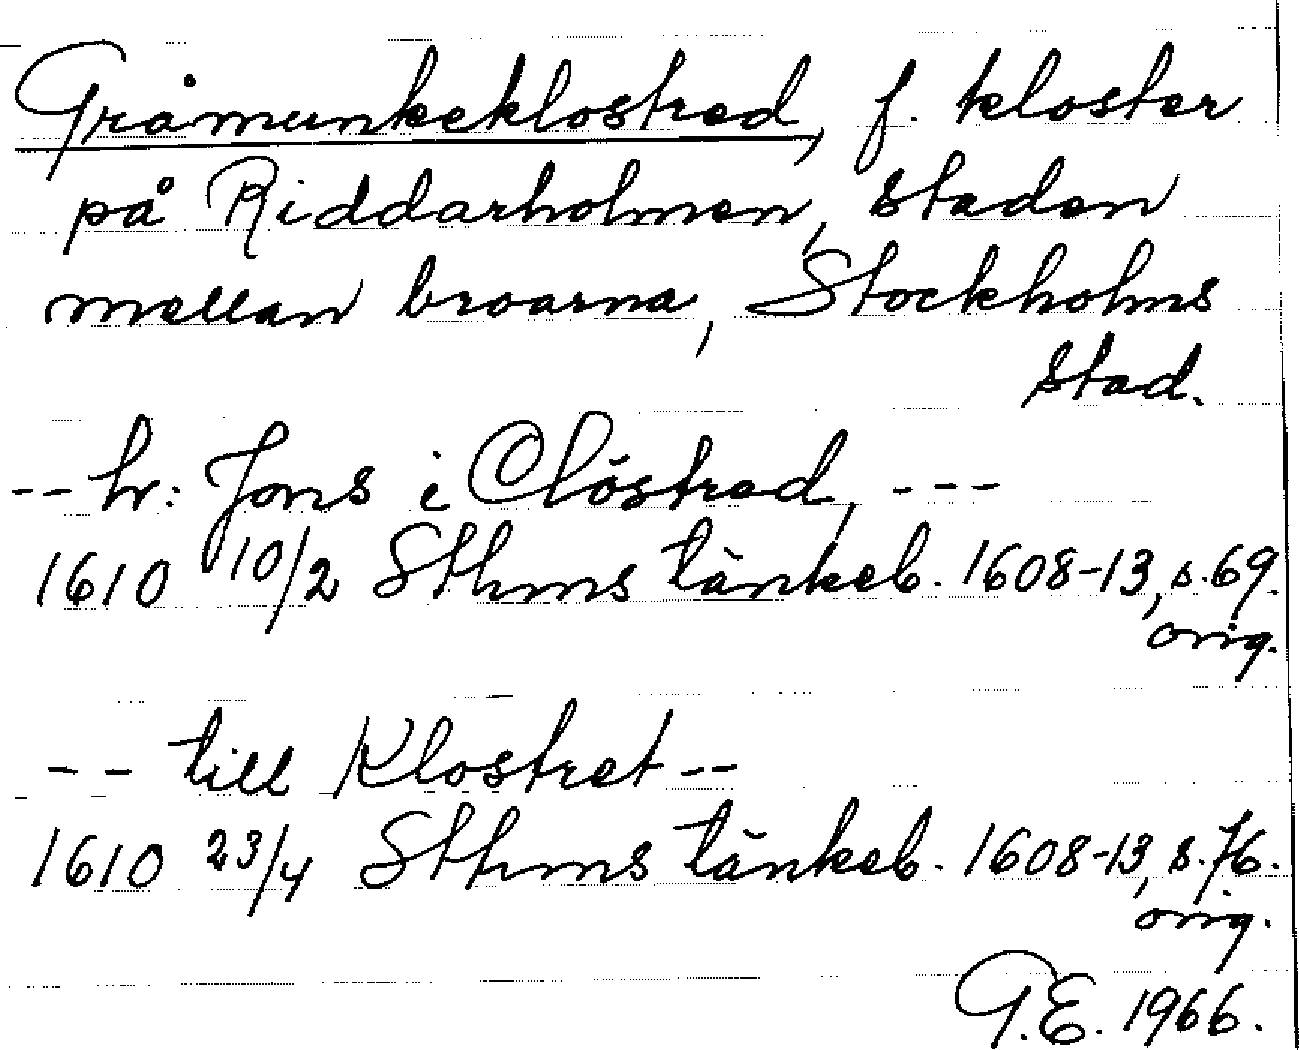 Gråmunkeklostred, f. kloster
på Riddarholmen, staden
mellan broarna, Stockholms
stad.
-- hr: Jons i Clöstred, ---
1610 10/2 Sthms tänkeb. 1608-13, s. 69.
orig.
-- till Klostret --
1610 23/4 Sthms tänkeb. 1608-13, s. 76.
orig.
G.E. 1966.